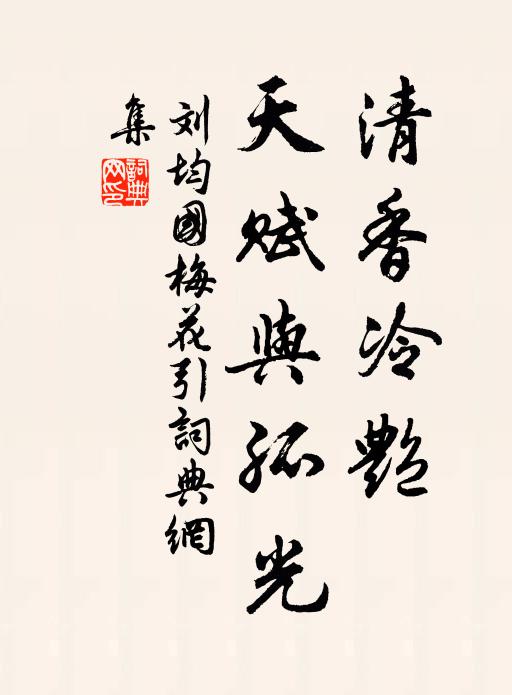 清香冷艷
天賦與孤光
刘均國梅花引詞典網
集
詞典
网印